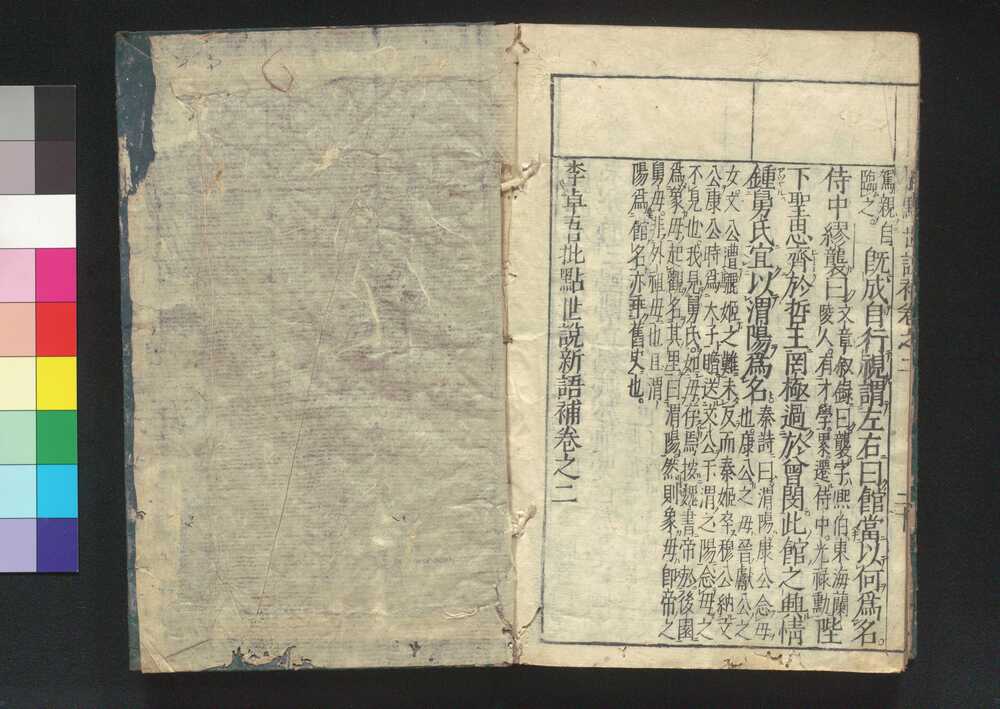 篤親自
臨之。既成自行視謂左右曰館當以何爲名。
侍中繆襲曰文章叙録曰襲字熙伯東海蘭
陵人。有才學。累遷侍中。光祿勳陛
下聖思齊於哲王罔極過於曾閔此館之興情
鍾舅氏宜以渭陽爲名秦詩曰渭陽康公念母
也。康公之母晉獻公之
女文公遭驪姬之難未反而秦姬卒穆公納文
公康公時爲大子贈送文公于渭之陽念母之
不見也我見舅氏。如母存焉。按魏書帝於後園
爲象母起觀名其里曰渭陽。然則象母即帝之
舅母。非外祖母也且渭
陽爲館名亦乖舊史也。
李卓吾批點世說新語補卷之二